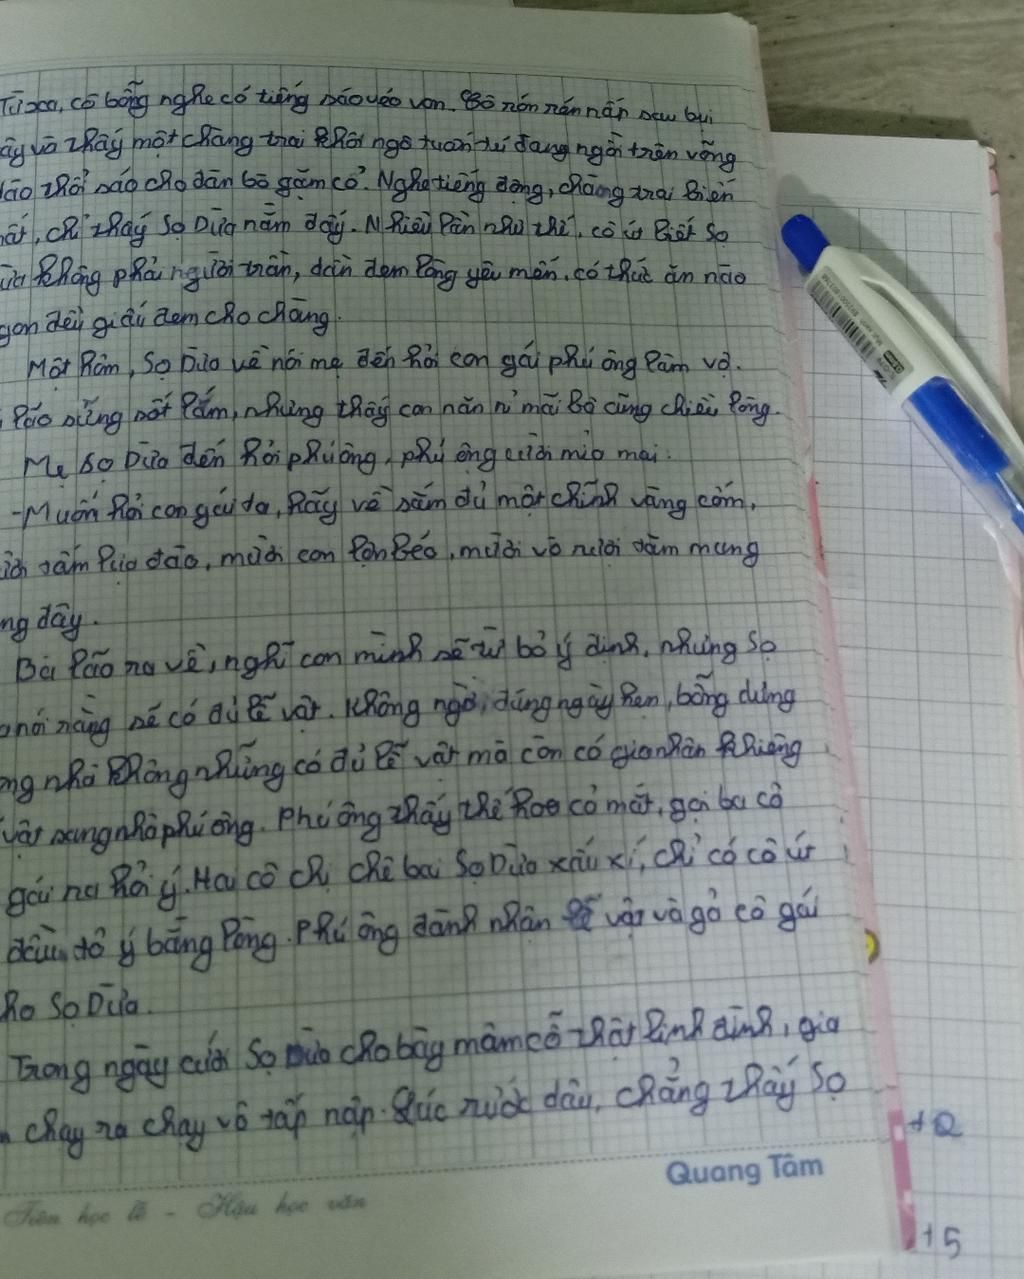 Từ xa, cô bỗng nghe có tiếng sáo véo von. Cô rón rén nấp sau bụi
ây và thấy một chàng trai khôi ngô tuấn tú đang ngồi trên võng
đào thổi sáo cho đàn bò gặm cỏ. Nghe tiếng động, chàng trai biến
mất, chỉ thấy Sọ Dừa nằm đấy. Nhiều lần như thế, cô út biết Sọ
ừa không phải người trần, dần đem lòng yêu mến, có thức ăn nào
gon đều giấu đem cho chàng.
Một hôm, Sọ Dừa về nói mẹ đến hỏi con gái phú ông làm vợ.
lão sửng sốt lắm, nhưng thấy con năn nỉ mãi bà cũng chiều lòng.
Mẹ Sọ Dừa đến hỏi phú ông, phú ông cười mỉa mai:
-Muốn hỏi con gái ta, hãy về sắm đủ một chĩnh vàng cốm,
ười tấm lụa đào, mười con lợn béo, mười vò rượu tăm mang
ng đây.
Bà lão ra về, nghĩ con mình sẽ từ bỏ ý định, nhưng Sọ
a nói rằng sẽ có đủ lễ vật. Không ngờ, đúng ngày hẹn, bỗng dưng
ng nhà không những có đủ lễ vật mà còn có gia nhân khiêng
vật sang nhà phú ông. Phú ông thấy thế hoa cả mắt, gọi ba cô
gái ra hỏi ý. Hai cô chị chê bai Sọ Dừa xấu xí, chỉ có cô út
đầu, tỏ ý bằng lòng. Phú ông đành nhận lễ vật và gả cô gái
ho Sọ Dừa.
Trong ngày cưới Sọ Dừa cho bày mâm cỗ thật linh đình, gia
n chạy ra chạy vô tấp nập. Lúc rước dâu, chẳng thấy Sọ
Quang Tâm
Tiên học lễ - Hậu học văn
+2
+5